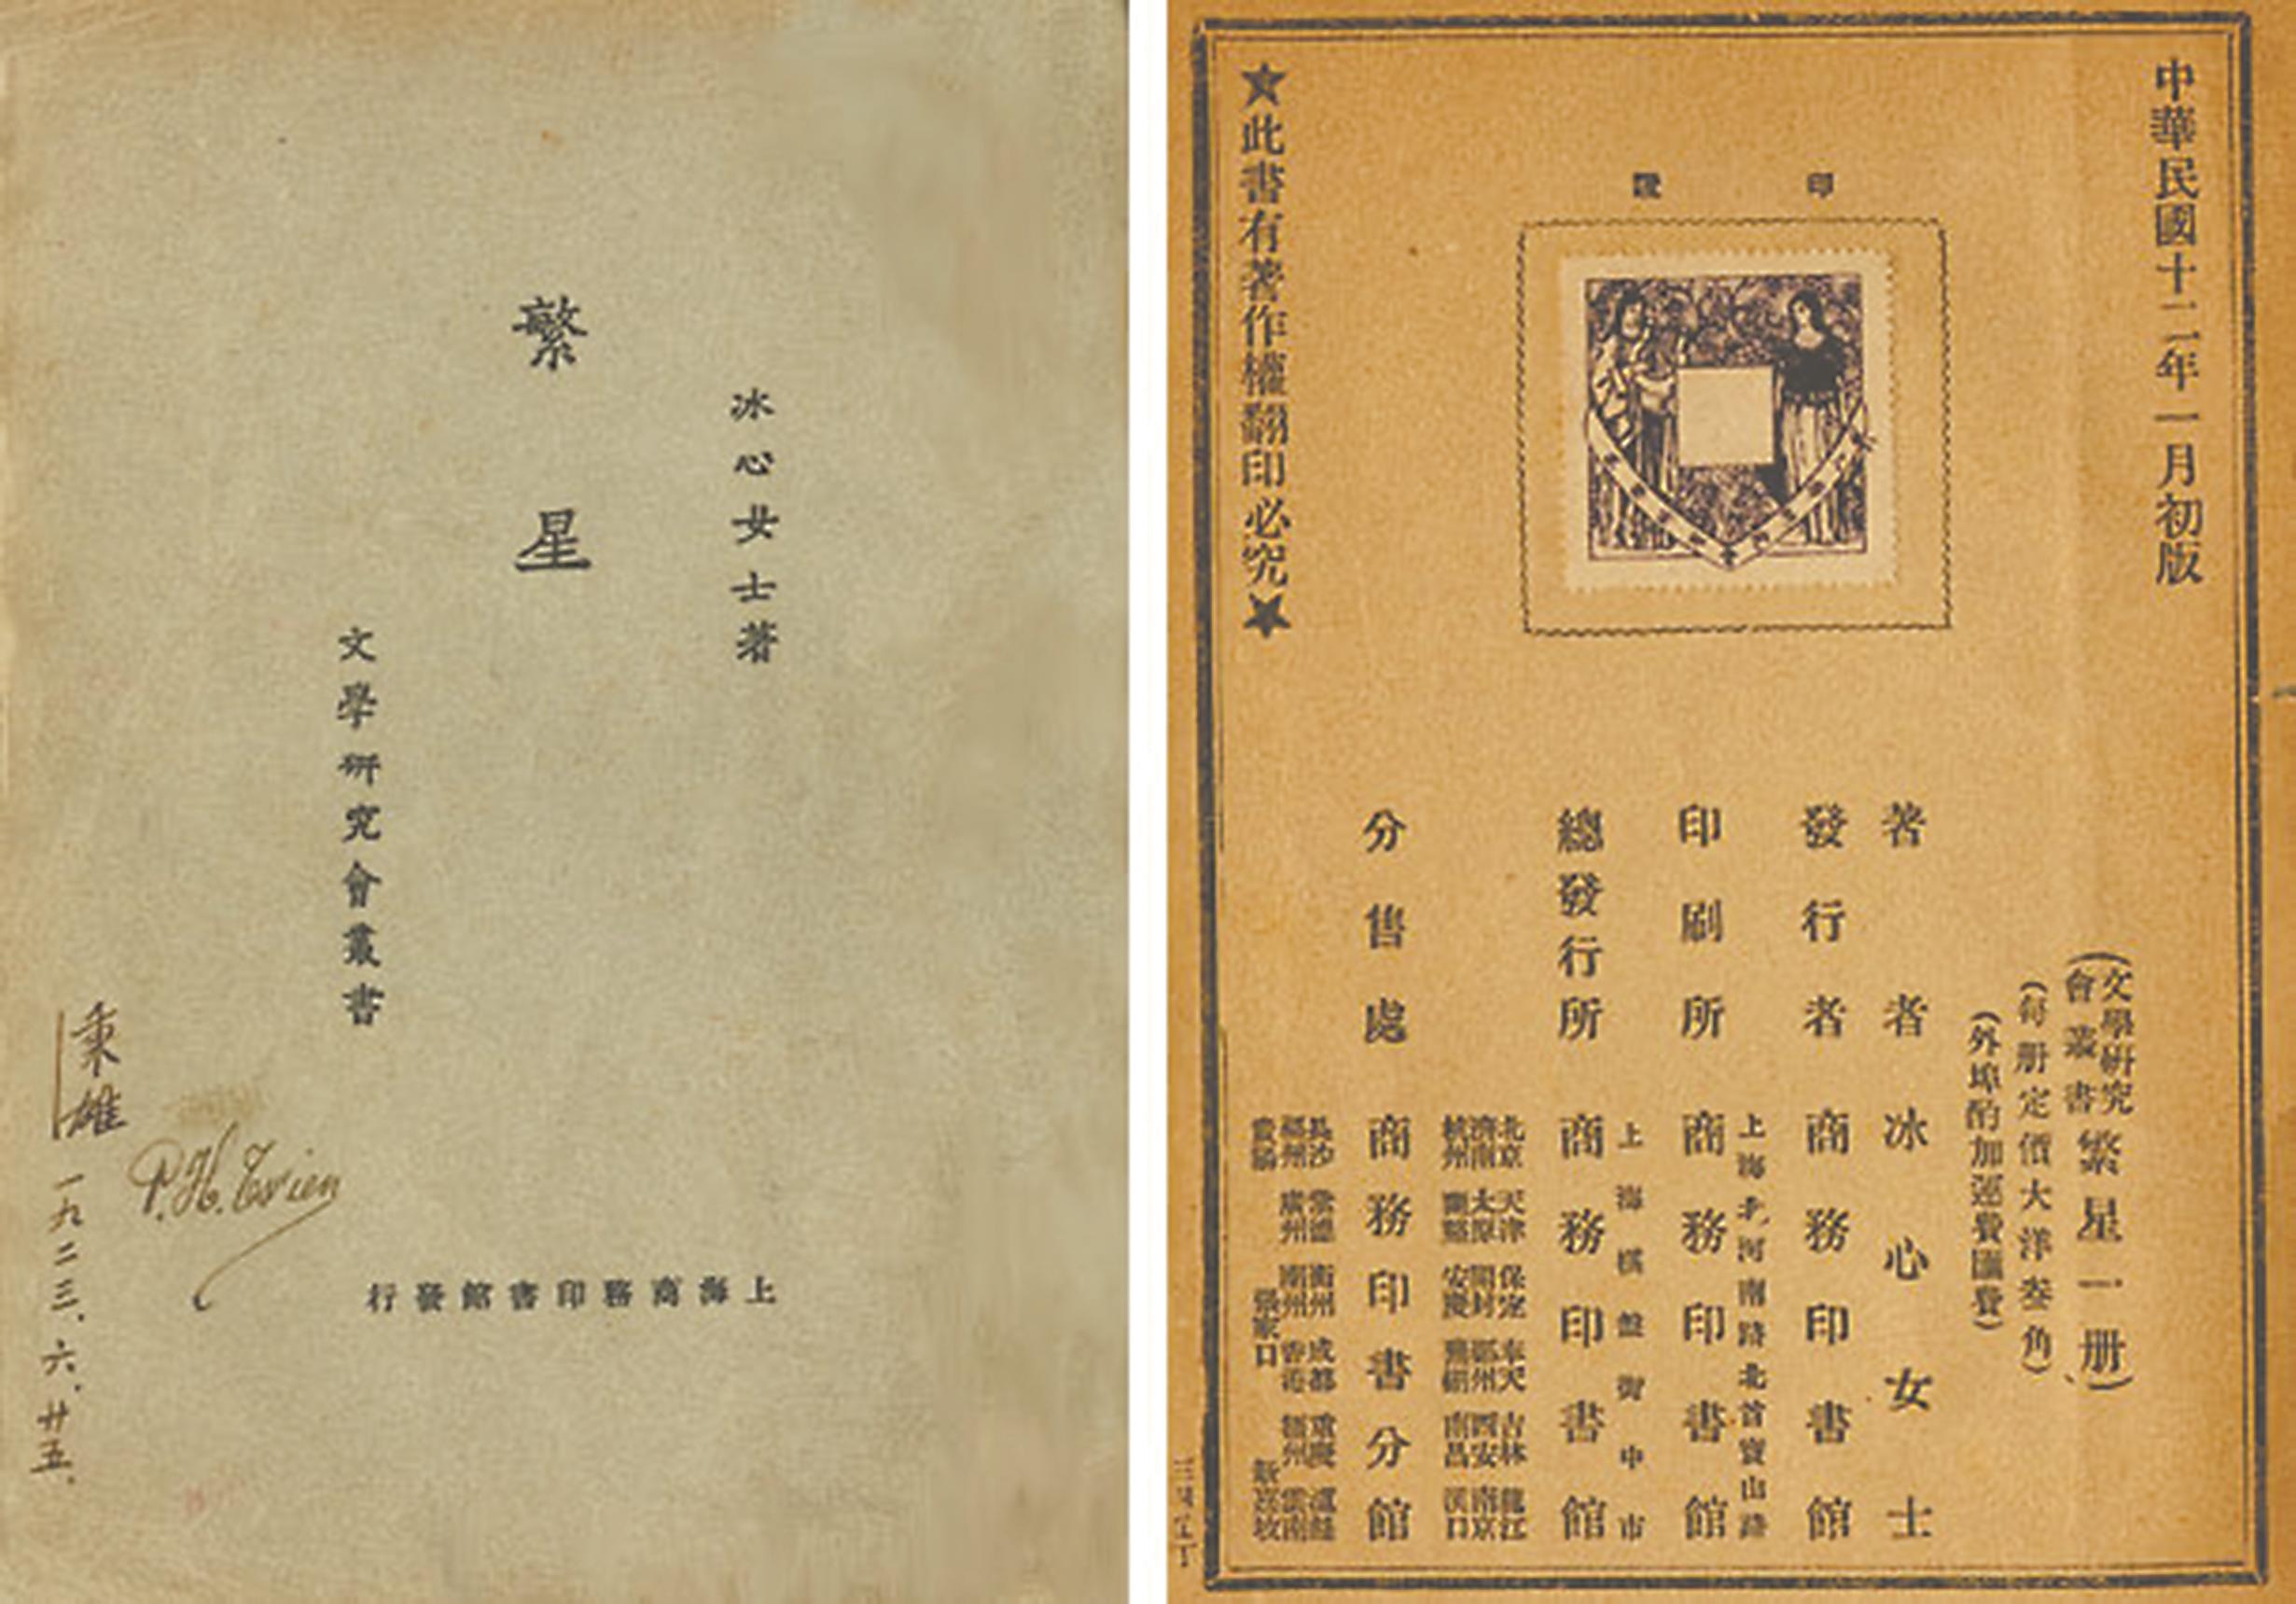 冰心女士著
繁星
文學研究會叢書
上海商務印書館發行
秉雄
P.H.Tsien
一九二三、六、廿五、
中華民國十二年一月初版
(文學研究會叢書繁星一册)
(每册定價大洋叁角)
(外埠酌加運費匯費)
印證
著者 冰心女士
發行者 商務印書館
上海北河南路北首寶山路
印刷所 商務印書館
上海棋盤街中市
總發行所 商務印書館
北京 天津 保定 奉天 吉林 龍江
濟南 太原 開封 鄭州 西安 南京
杭州 安慶 南昌 漢口
分售處 商務印書分館
長沙 常德 衡州 成都 重慶
福州 廣州 潮州 香港 雲南
張家口 新嘉坡
★此書有著作權翻印必究★